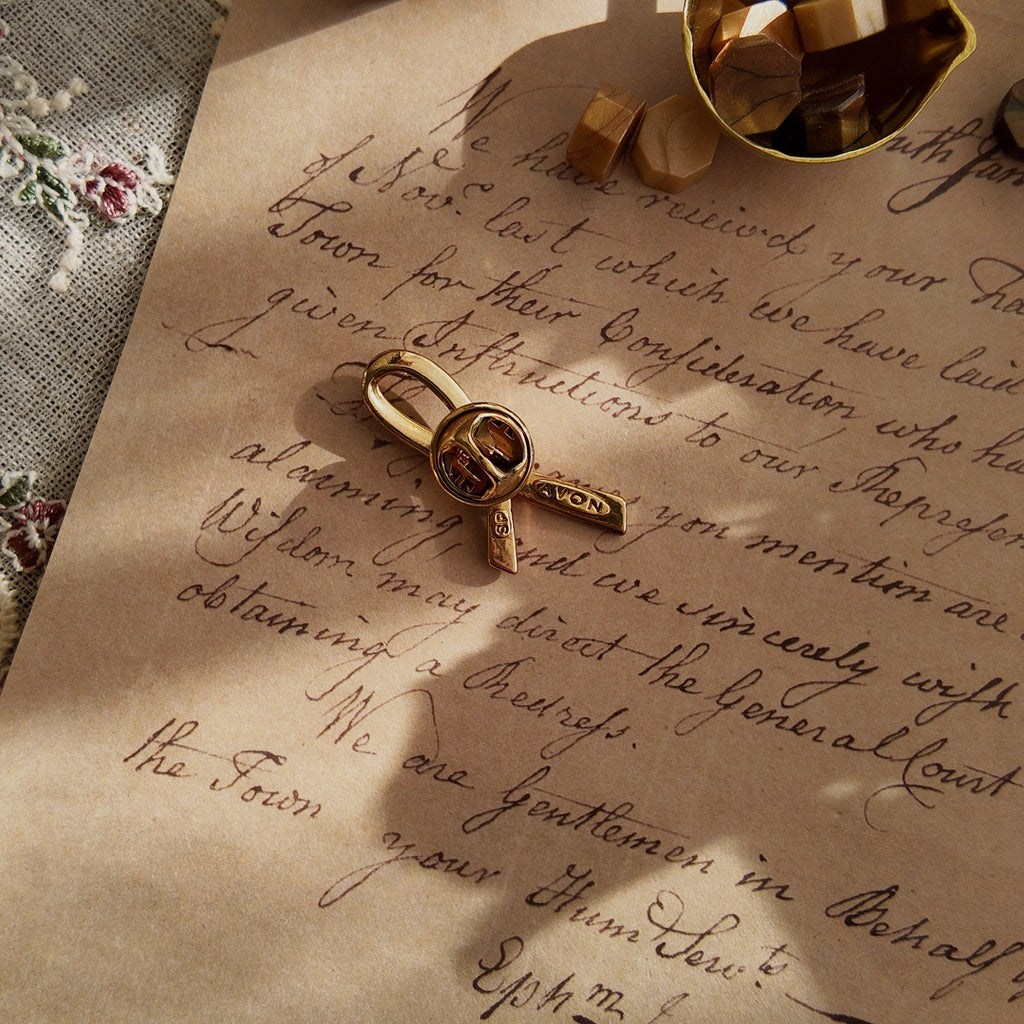 We have receiv'd your
of Nov.r last which we have laid
Town for their Consideration who ha
given Instructions to our Represen
you mention are
alarming, and we sincerely wish
Wisdom may direct the General Court
obtaining a Redress.
We are Gentlemen in Behalf
the Town
your Hum.l Serv.ts
Eph.m
AVON
SP